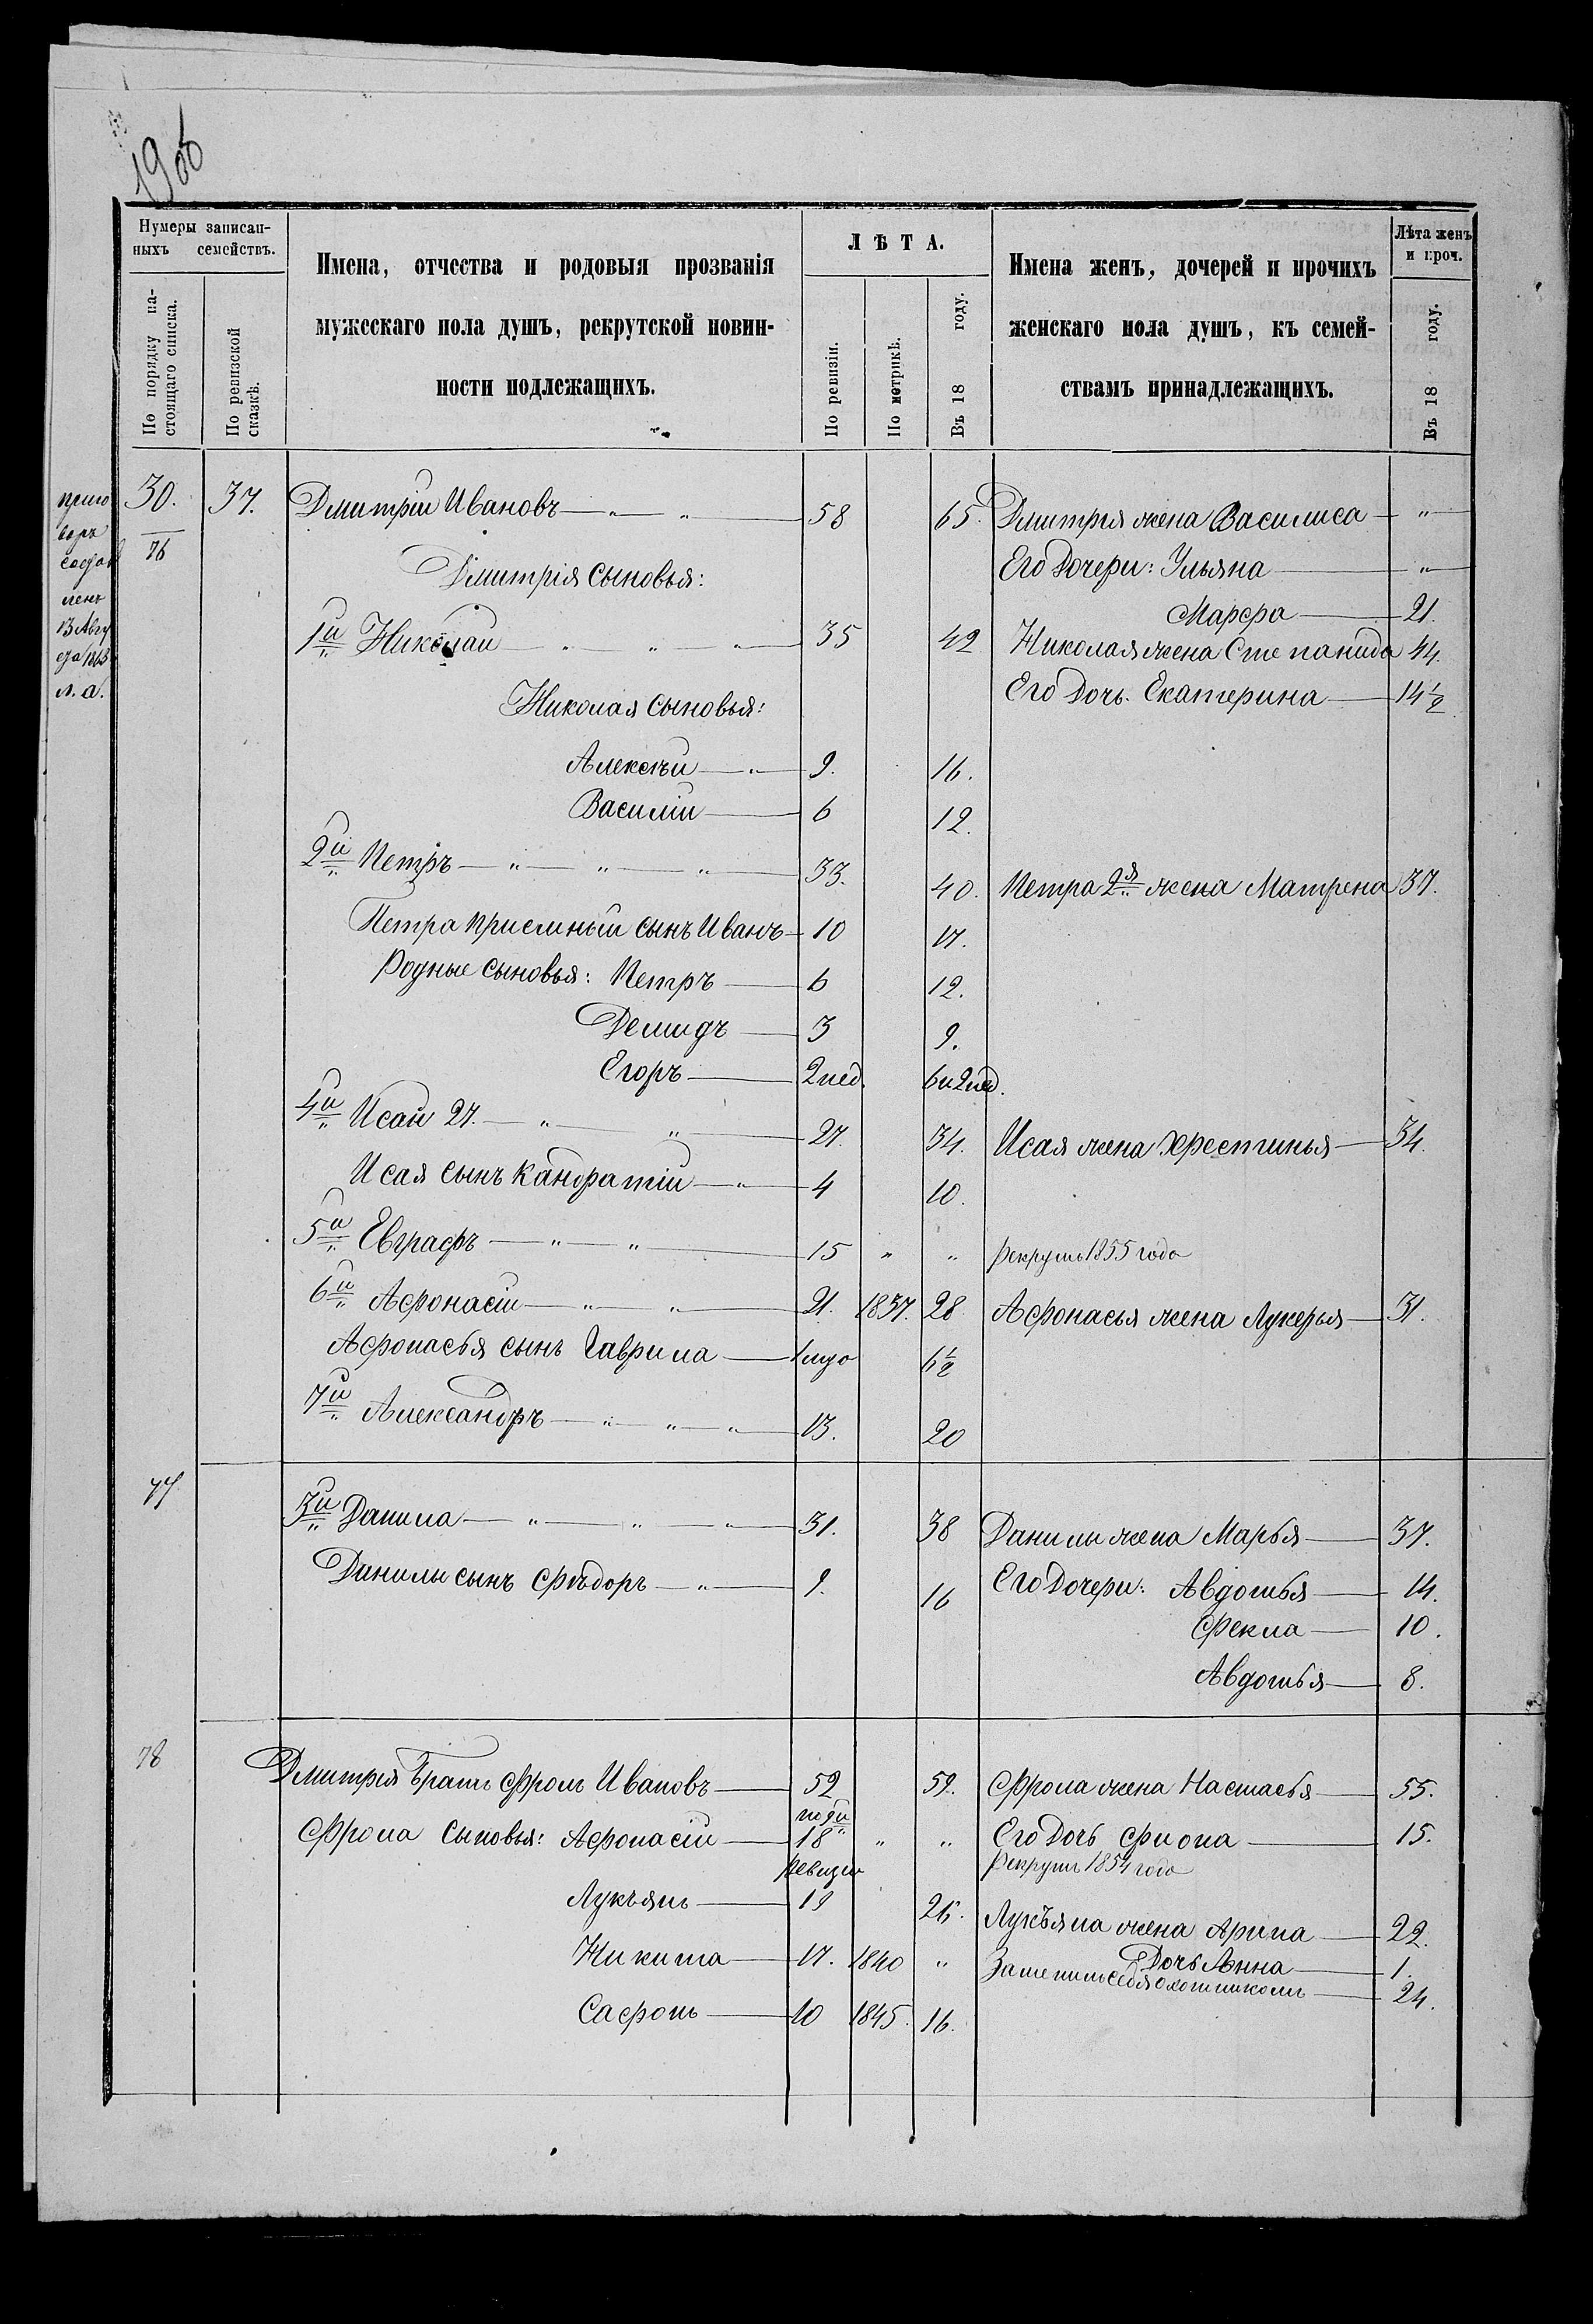 1906
Нумеры записан-
ныхъ семействъ.
По порядку на-
стоящаго списка.
По ревизской
сказкѣ.
Имена, отчества и родовыя прозванія
мужескаго пола душъ, рекрутской повин-
ности подлежащихъ.
ЛѢТА.
По ревизіи.
По метрикѣ.
Въ 18 году.
Имена женъ, дочерей и прочихъ
женскаго пола душъ, къ семей-
ствамъ принадлежащихъ.
Лѣта женъ
и проч.
Въ 18 году.
приго
воръ
состав
ленъ
13 Авгу
ста 1863
30. 37. Дмитрій Ивановъ — " — " — 58 65. Дмитрія жена Василиса — "
76
Дмитрія сыновья: Его дочери: Ульяна — "
Марфа — 21.
1й Николай — " — " — " — 35 42 Николая жена Степанида 44.
Николая сыновья: Его дочь Екатерина — 14½
Алексѣй — " — 9. 16.
Василій — 6 12.
2й Петръ — " — " — " — 33. 40. Петра 2я жена Матрена 37.
Петра приемный сынъ Иванъ — 10 17.
Родные сыновья: Петръ — 6 12.
Демидъ — 3 9.
Егоръ — 2 нед. 6 и 2 нед.
4й Исай 27. — " — " — 27. 34. Исая жена Хрестинья — 34.
Исая сынъ Кандратій — " — 4 10.
5й Евграфъ — " — " — 15 " " рекрутъ 1855 года
6й Афонасій — " — " — 21. 1837. 28 Афонасья жена Лукерья — 31.
Афонасья сынъ Гаврила — 6½
7й Александръ — " — " — " — 13. 20
77
3й Данила — " — " — " — 31. 38 Данилы жена Марья — 37.
Данилы сынъ Фѣдоръ — " — 9. 16 Его дочери: Авдотья — 14.
Фекла — 10.
Авдотья — 8.
78
Дмитрія братъ Фролъ Ивановъ — 52 59. Фрола жена Настасья — 55.
Фрола сыновья: Афонасій — по 9й 18 ревизіи " " Его дочь Фиона — 15.
рекрутъ 1854 года
Лукъянъ — 19 26. Лукъяна жена Арина — 22.
Дочь Анна — 1.
Никита — 17. 1840 " Заменилъ себя охотникомъ — 24.
Сафонъ — 10 1845. 16.